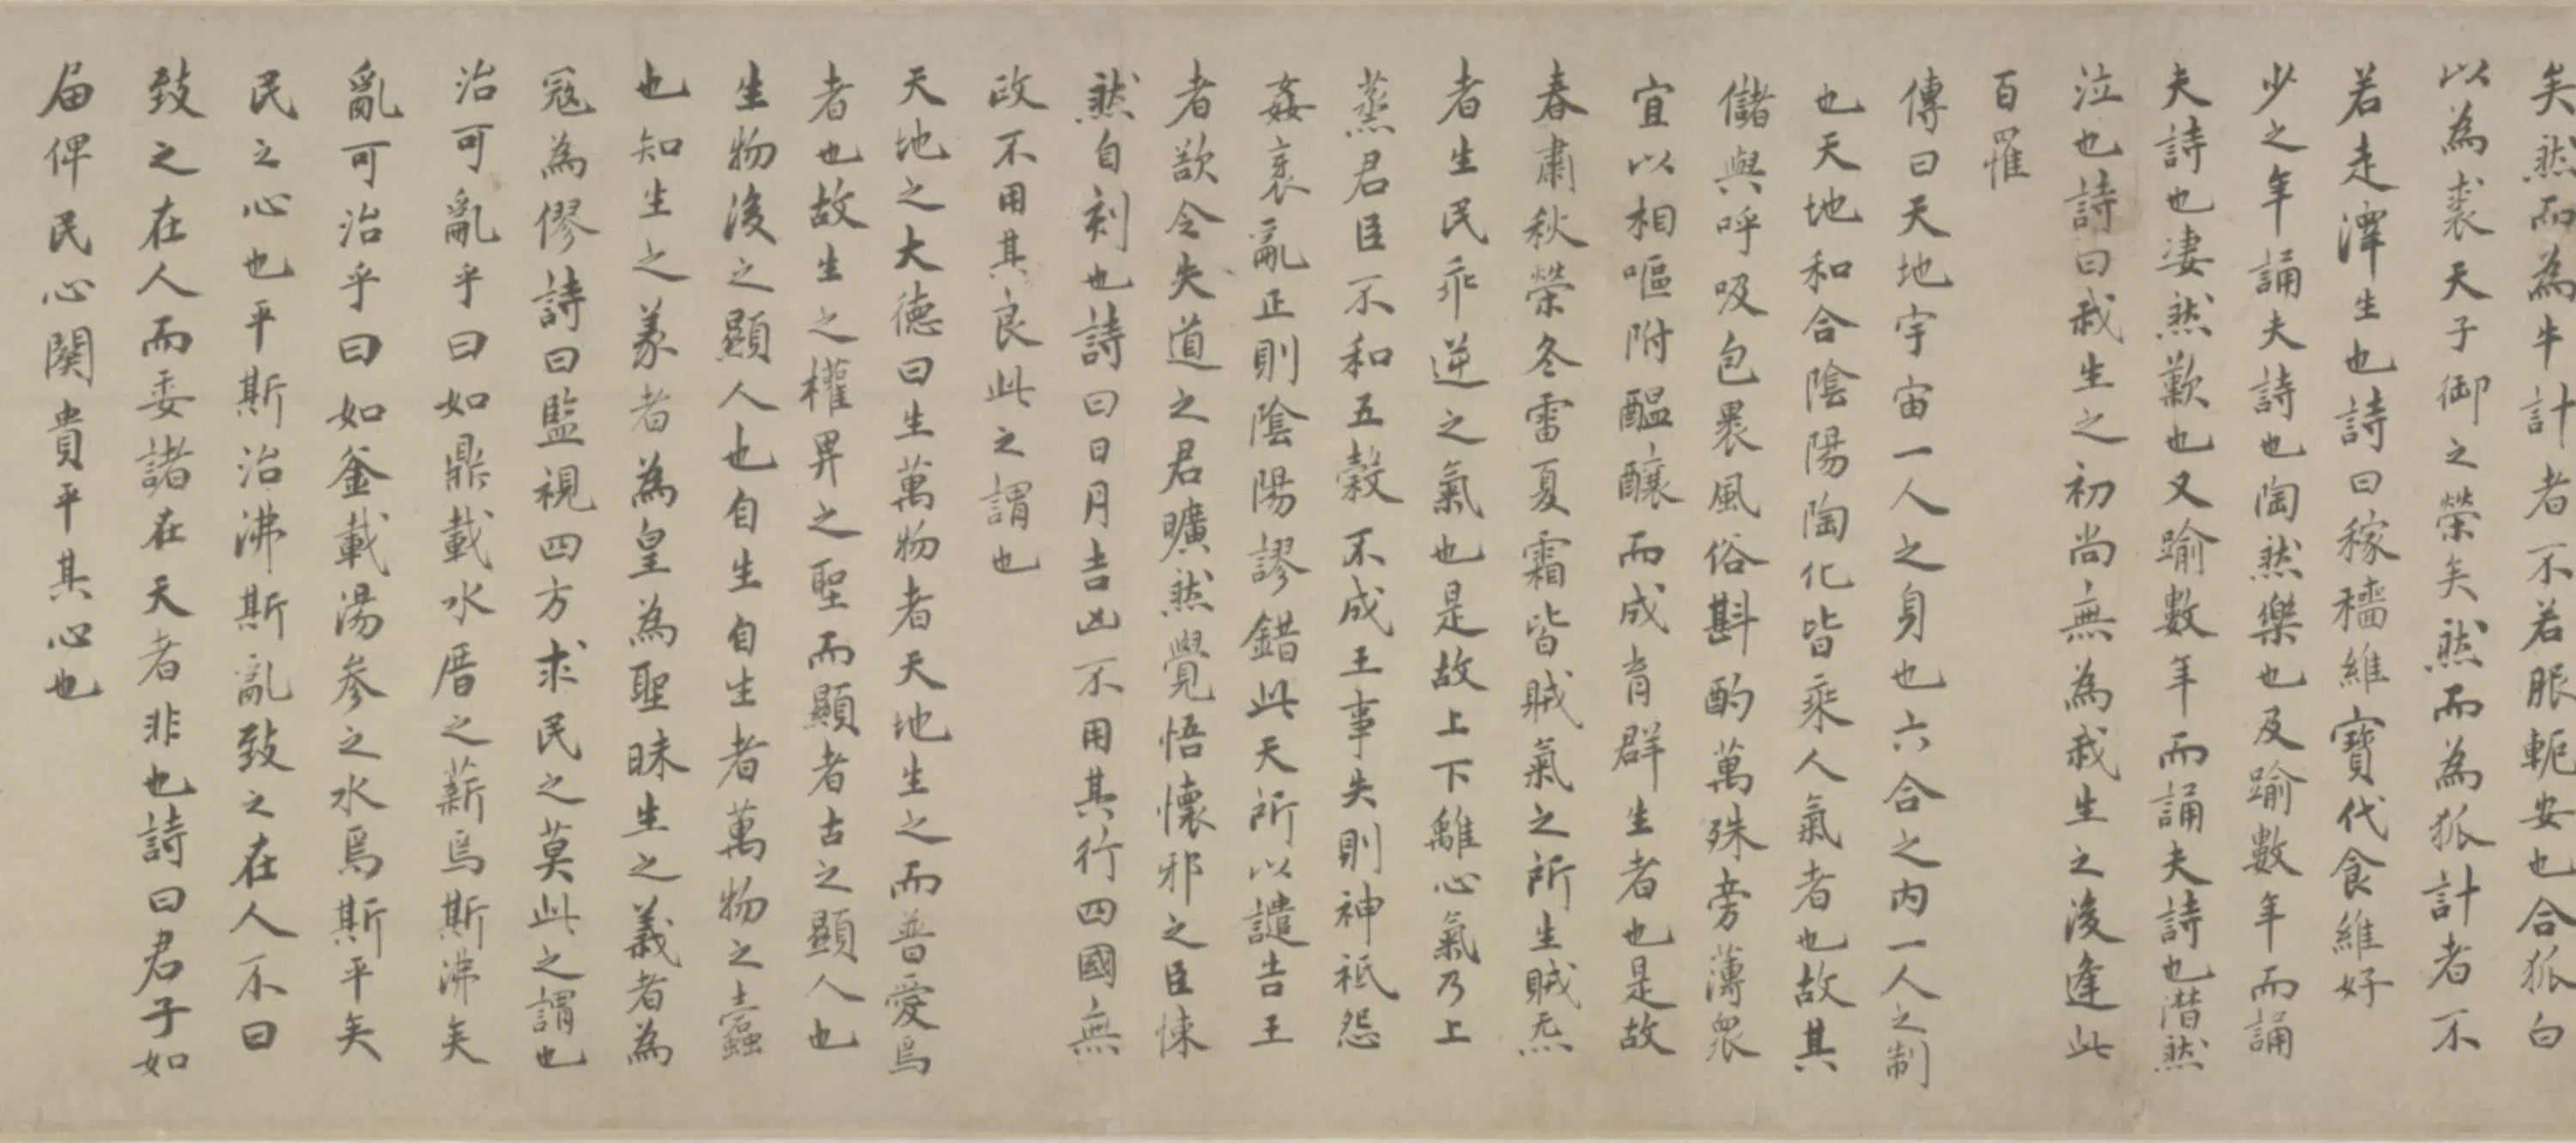 矣然而為牛計者不若服軛安也合狐白
以為裘天子御之榮矣然而為狐計者不
若走澤生也詩曰稼穡維寶代食維好
少之年誦夫詩也陶然樂也及踰數年而誦
夫詩也淒然歎也又踰數年而誦夫詩也潛然
泣也詩曰我生之初尚無為我生之後逢此
百罹
傳曰天地宇宙一人之身也六合之內一人之制
也天地和合陰陽陶化皆乘人氣者也故其
儲與呼吸包裹風俗斟酌萬殊旁薄衆
宜以相嘔附醞釀而成育群生者也是故
春肅秋榮冬雷夏霜皆賊氣之所生賊炁
者生民乖逆之氣也是故上下離心氣乃上
蒸君臣不和五穀不成王事失則神祗怨
姦衺亂正則陰陽謬錯此天所以譴告王
者欲令失道之君曠然覺悟懷邪之臣悚
然自刻也詩曰日月告凶不用其行四國無
政不用其良此之謂也
天地之大德曰生萬物者天地生之而普愛焉
者也故生之權畀之聖而顯者古之顯人也
生物後之顯人也自生自生者萬物之蠹
也知生之義者為皇為聖昧生之義者為
寇為僇詩曰監視四方求民之莫此之謂也
治可亂乎曰如鼎載水厝之薪焉斯沸矣
亂可治乎曰如釜載湯參之水焉斯平矣
民之心也平斯治沸斯亂致之在人不曰
致之在人而委諸在天者非也詩曰君子如
屆俾民心闋貴平其心也